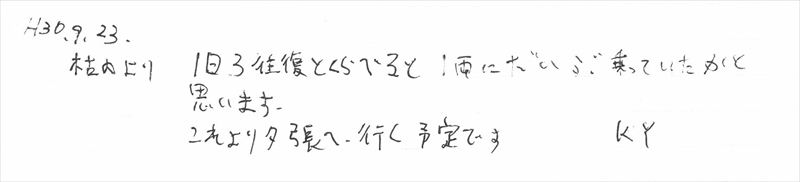 H30.9.23.
枯内より 1日3往復とくらべると 1両にだいぶ乗っていたかと
思います。
これより夕張へ行く予定です KY